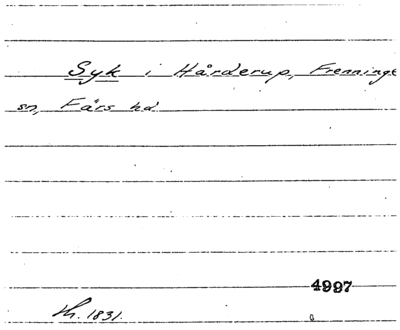 Syk i Hårderup, Frenninge
sn, Färs hd
4997
Th. 1831.
a